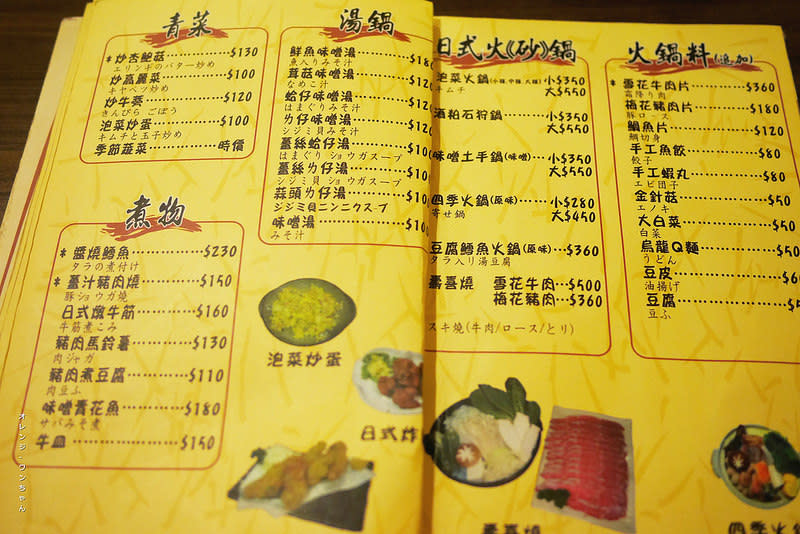 青菜
*炒杏鮑菇 $130
エリンギのバター炒め
炒高麗菜 $100
キャベツ炒め
炒牛蒡 $120
きんぴら ごぼう
泡菜炒蛋 $100
キムチと玉子炒め
季節蔬菜 時價
煮物
*醬燒鱈魚 $230
タラの煮付け
*薑汁豬肉燒 $150
豚ショウガ焼
日式燉牛筋 $160
牛筋煮こみ
豬肉馬鈴薯 $130
肉ジャガ
豬肉煮豆腐 $110
肉豆ふ
味噌青花魚 $180
サバみそ煮
牛皿 $150
湯鍋
鮮魚味噌湯 $180
魚入りみそ汁
茸菇味噌湯
なめこ汁
蛤仔味噌湯
はまぐりみそ汁
ㄌ仔味噌湯
シジミ貝みそ汁
薑絲蛤仔湯
はまぐり ショウガスープ
薑絲ㄌ仔湯
シジミ貝 ショウガスープ
蒜頭ㄌ仔湯
シジミ貝ニンニクスープ
味噌湯
みそ汁
泡菜炒蛋
日式炸
日式火《砂》鍋
泡菜火鍋(小辣,中辣,大辣) 小$350
キムチ 大$550
酒粕石狩鍋 小$350
大$550
味噌土手鍋(味噌) 小$350
大$550
四季火鍋(原味) 小$280
寄せ鍋 大$450
豆腐鱈魚火鍋(原味) $360
タラ入り湯豆腐
壽喜燒 雪花牛肉 $500
梅花豬肉 $360
スキ燒(牛肉/ロース/とり)
火鍋料(追加)
*雪花牛肉片 $360
霜降り肉
梅花豬肉片 $180
豚ロース
鯛魚片 $120
鯛切身
手工魚餃 $80
餃子
手工蝦丸 $80
エビ団子
金針菇 $50
エノキ
大白菜 $50
白菜
烏龍Q麵 $50
うどん
豆皮
油揚げ
豆腐
豆ふ
壽喜燒
四季火鍋
オレンジ・ワンちゃん